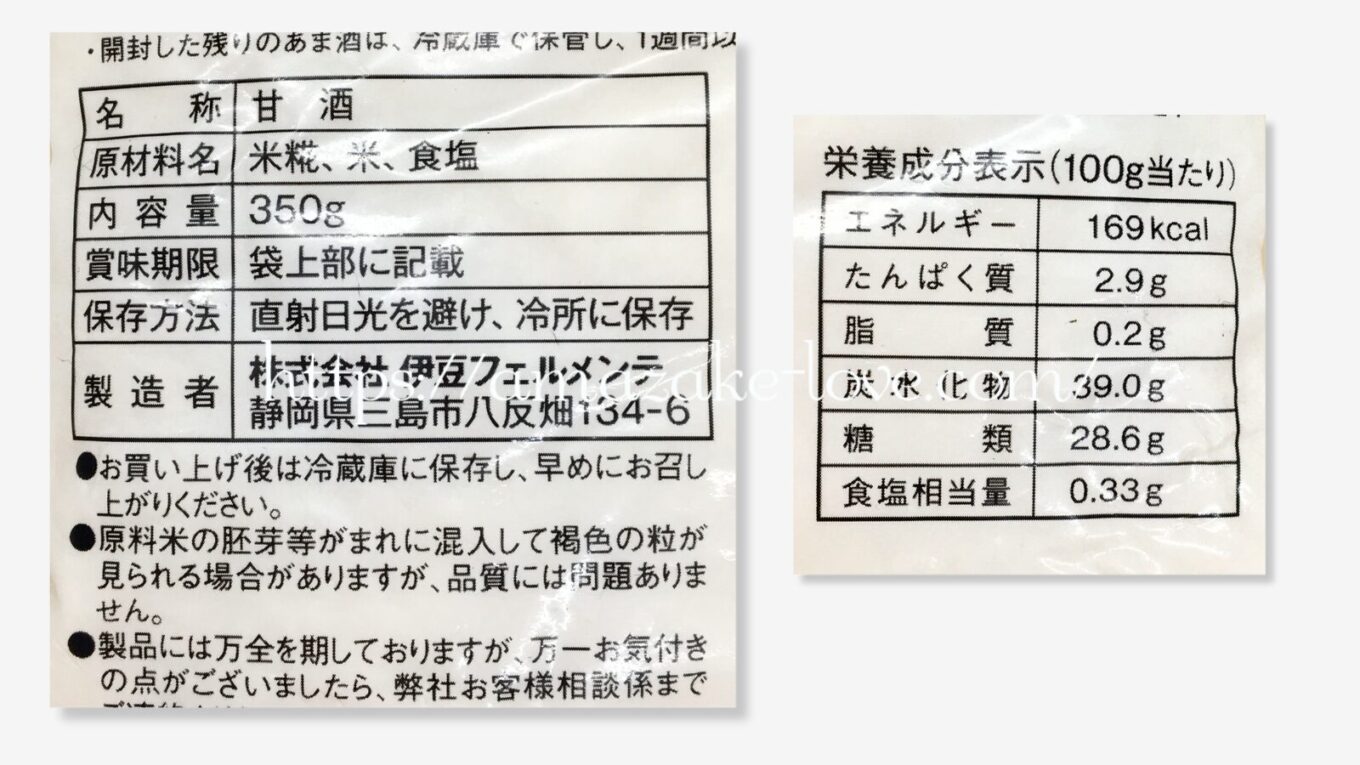 ・開封した残りのあま酒は、冷蔵庫で保管し、1週間以
名称 甘酒
原材料名 米糀、米、食塩
内容量 350g
賞味期限 袋上部に記載
保存方法 直射日光を避け、冷所に保存
製造者 株式会社 伊豆フェルメンテ
静岡県三島市八反畑134-6
●お買い上げ後は冷蔵庫に保存し、早めにお召し
上がりください。
●原料米の胚芽等がまれに混入して褐色の粒が
見られる場合がありますが、品質には問題ありま
せん。
●製品には万全を期しておりますが、万一お気付き
の点がございましたら、弊社お客様相談係まで
栄養成分表示(100g当たり)
エネルギー 169kcal
たんぱく質 2.9g
脂質 0.2g
炭水化物 39.0g
糖類 28.6g
食塩相当量 0.33g
https://amazake-love.com/